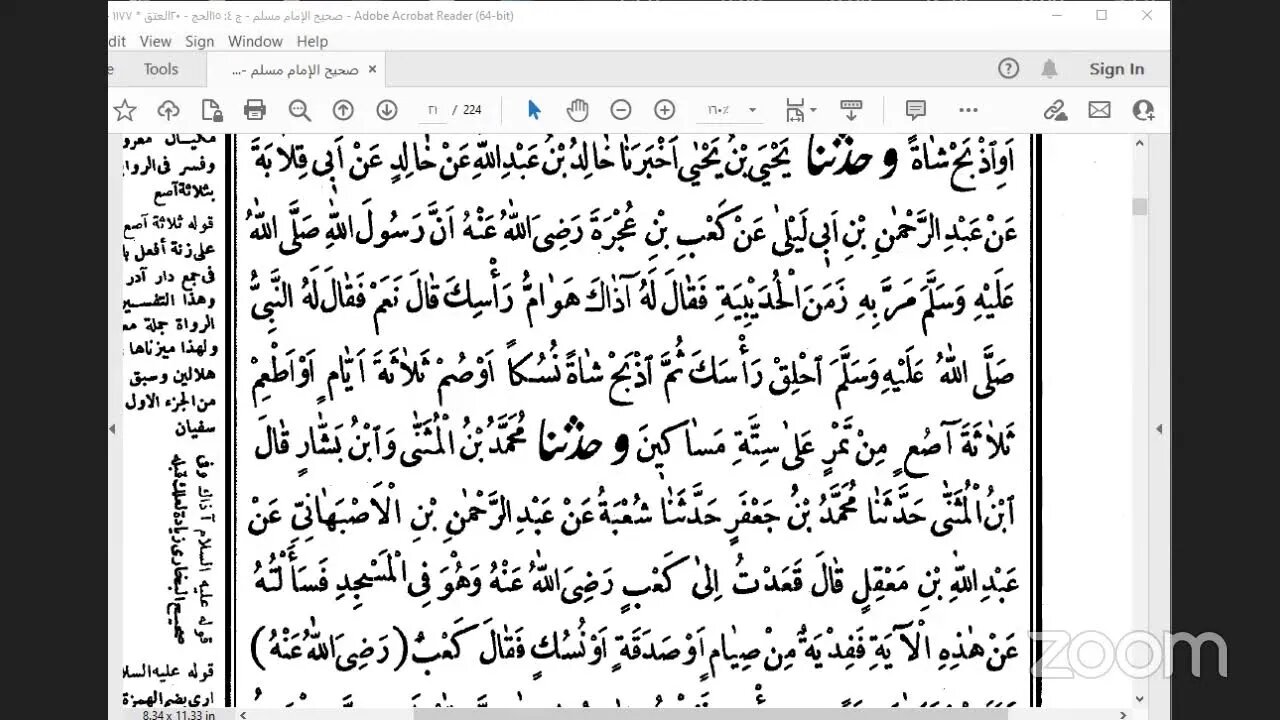 صحيح الإمام مسلم - ج ٤: ١٥الحج - ٢٠العتق * ١١٧٧ - Adobe Acrobat Reader (64-bit)
dit View Sign Window Help
e Tools صحيح الإمام مسلم -... × Sign In
٢١ / 224 ١٦٠٪
اَوِ اذْبَحْ شَاةً وَ حَدَّثَنَا يَحْيَى بْنُ يَحْيٰى اَخْبَرَنَا خَالِدُ بْنُ عَبْدِ اللّٰهِ عَنْ خَالِدٍ عَنْ اَبِى قِلَابَةَ
عَنْ عَبْدِ الرَّحْمٰنِ بْنِ اَبِى لَيْلٰى عَنْ كَعْبِ بْنِ عُجْرَةَ رَضِىَ اللّٰهُ عَنْهُ اَنَّ رَسُولَ اللّٰهِ صَلَّى اللّٰهُ
عَلَيْهِ وَسَلَّمَ مَرَّ بِهِ زَمَنَ الْحُدَيْبِيَةِ فَقَالَ لَهُ آذَاكَ هَوَامُّ رَأْسِكَ قَالَ نَعَمْ فَقَالَ لَهُ النَّبِىُّ
صَلَّى اللّٰهُ عَلَيْهِ وَسَلَّمَ احْلِقْ رَأْسَكَ ثُمَّ اذْبَحْ شَاةً نُسُكاً اَوْ صُمْ ثَلَاثَةَ اَيَّامٍ اَوْ اَطْعِمْ
ثَلَاثَةَ آصُعٍ مِنْ تَمْرٍ عَلٰى سِتَّةِ مَسَاكِينَ وَ حَدَّثَنَا مُحَمَّدُ بْنُ الْمُثَنّٰى وَابْنُ بَشَّارٍ قَالَ
ابْنُ الْمُثَنّٰى حَدَّثَنَا مُحَمَّدُ بْنُ جَعْفَرٍ حَدَّثَنَا شُعْبَةُ عَنْ عَبْدِ الرَّحْمٰنِ بْنِ الْاَصْبَهَانِيِّ عَنْ
عَبْدِ اللّٰهِ بْنِ مَعْقِلٍ قَالَ قَعَدْتُ اِلٰى كَعْبٍ رَضِىَ اللّٰهُ عَنْهُ وَهُوَ فِى الْمَسْجِدِ فَسَأَلْتُهُ
عَنْ هٰذِهِ الْآيَةِ فَفِدْيَةٌ مِنْ صِيَامٍ اَوْ صَدَقَةٍ اَوْ نُسُكٍ فَقَالَ كَعْبٌ (رَضِىَ اللّٰهُ عَنْهُ)
مكيال معرو
وفسر فى الروا
بثلاثة آصع
قوله ثلاثة آصع
على زنة أفعل
فى جمع دار آدر
وهذا التفسير
الرواة جملة مع
ولهذا ميزناها
هلالين وسبق
من الجزء الاول
سفيان
قوله عليه السلام آذاك وفى
صحيح البخارى زيادة لعلك قبله
قوله عليه السلا
ارى بضم الهمزة
8.34 x 11.33 in
zoom